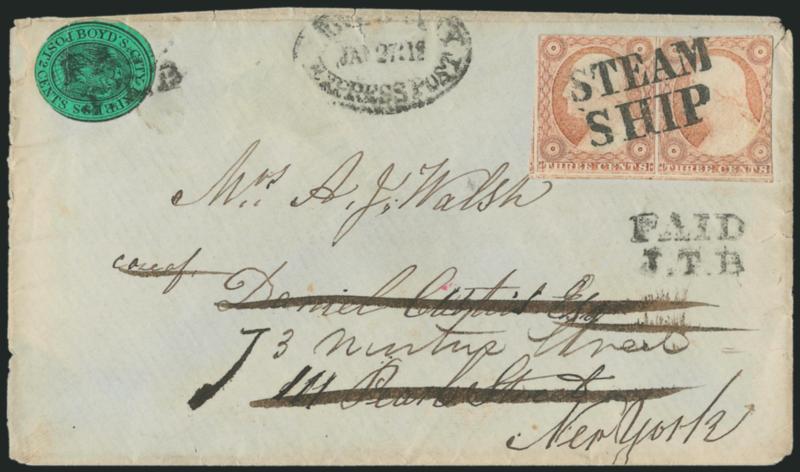 BOYD'S CITY EXPRESS POST 2 CENTS
JAN 27 12
EXPRESS POST
STEAM
SHIP
THREE CENTS THREE CENTS
PAID
J.T.B
Mrs A. J. Walsh
care of
Daniel Esq
73 Street
111 Pearl Street
New York